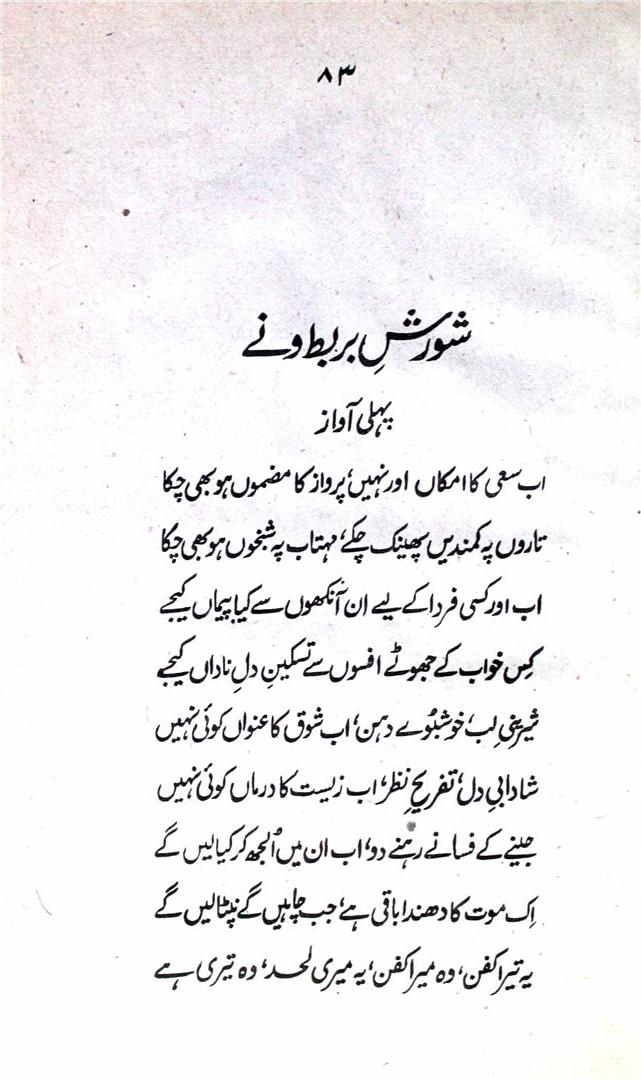 ۸۳
شورشِ بربط و نے
پہلی آواز
اب سعی کا امکاں اور نہیں، پرواز کا مضموں ہو بھی چکا
تاروں پہ کمندیں پھینک چکے، مہتاب پہ شبخوں ہو بھی چکا
اب اور کسی فردا کے لیے ان آنکھوں سے کیا پیماں کیجے
کِس خواب کے جھوٹے افسوں سے تسکینِ دلِ ناداں کیجے
شیرینیِ لب، خوشبوُے دہن، اب شوق کا عنواں کوئی نہیں
شادابیِ دل، تفریحِ نظر، اب زیست کا درماں کوئی نہیں
جینے کے فسانے رہنے دو، اب ان میں اُلجھ کر کیا لیں گے
اِک موت کا دھندا باقی ہے، جب چاہیں گے نپٹا لیں گے
یہ تیرا کفن، وہ میرا کفن، یہ میری لحد، وہ تیری ہے